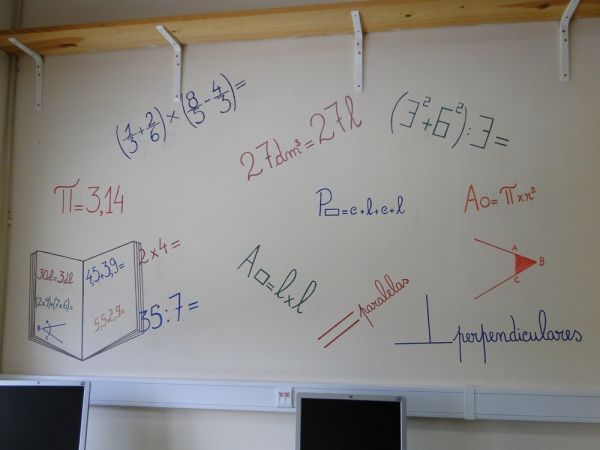 (1/3 + 2/6) × (8/5 - 4/3) =
27dm³ = 27l
(3² + 6²) : 3 =
π = 3,14
P▭ = c + l + c + l
A○ = π × r²
2 × 4 =
35 : 7 =
4,5 + 3,9 =
(2×9)+(7×6)=
5,5 × 2,9 =
A□ = l × l
paralelas
A
B
C
perpendiculares